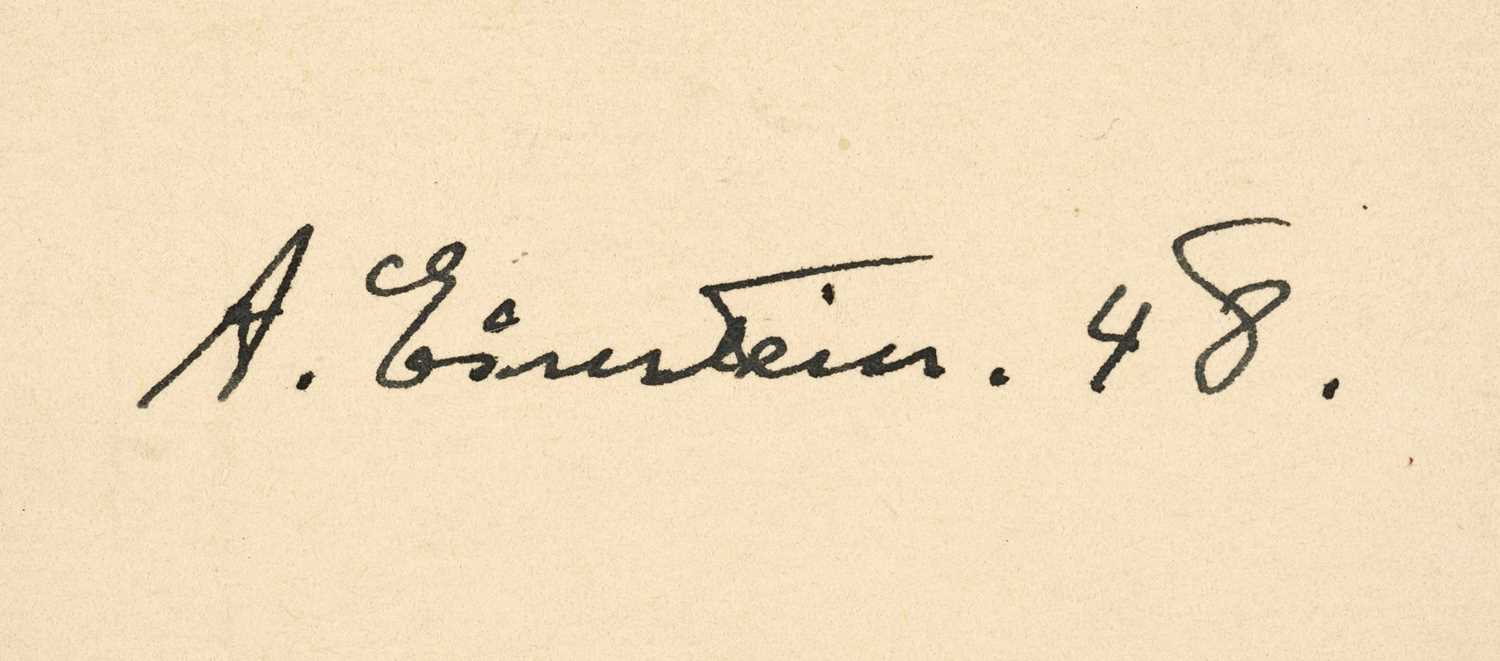 A. Einstein. 48.